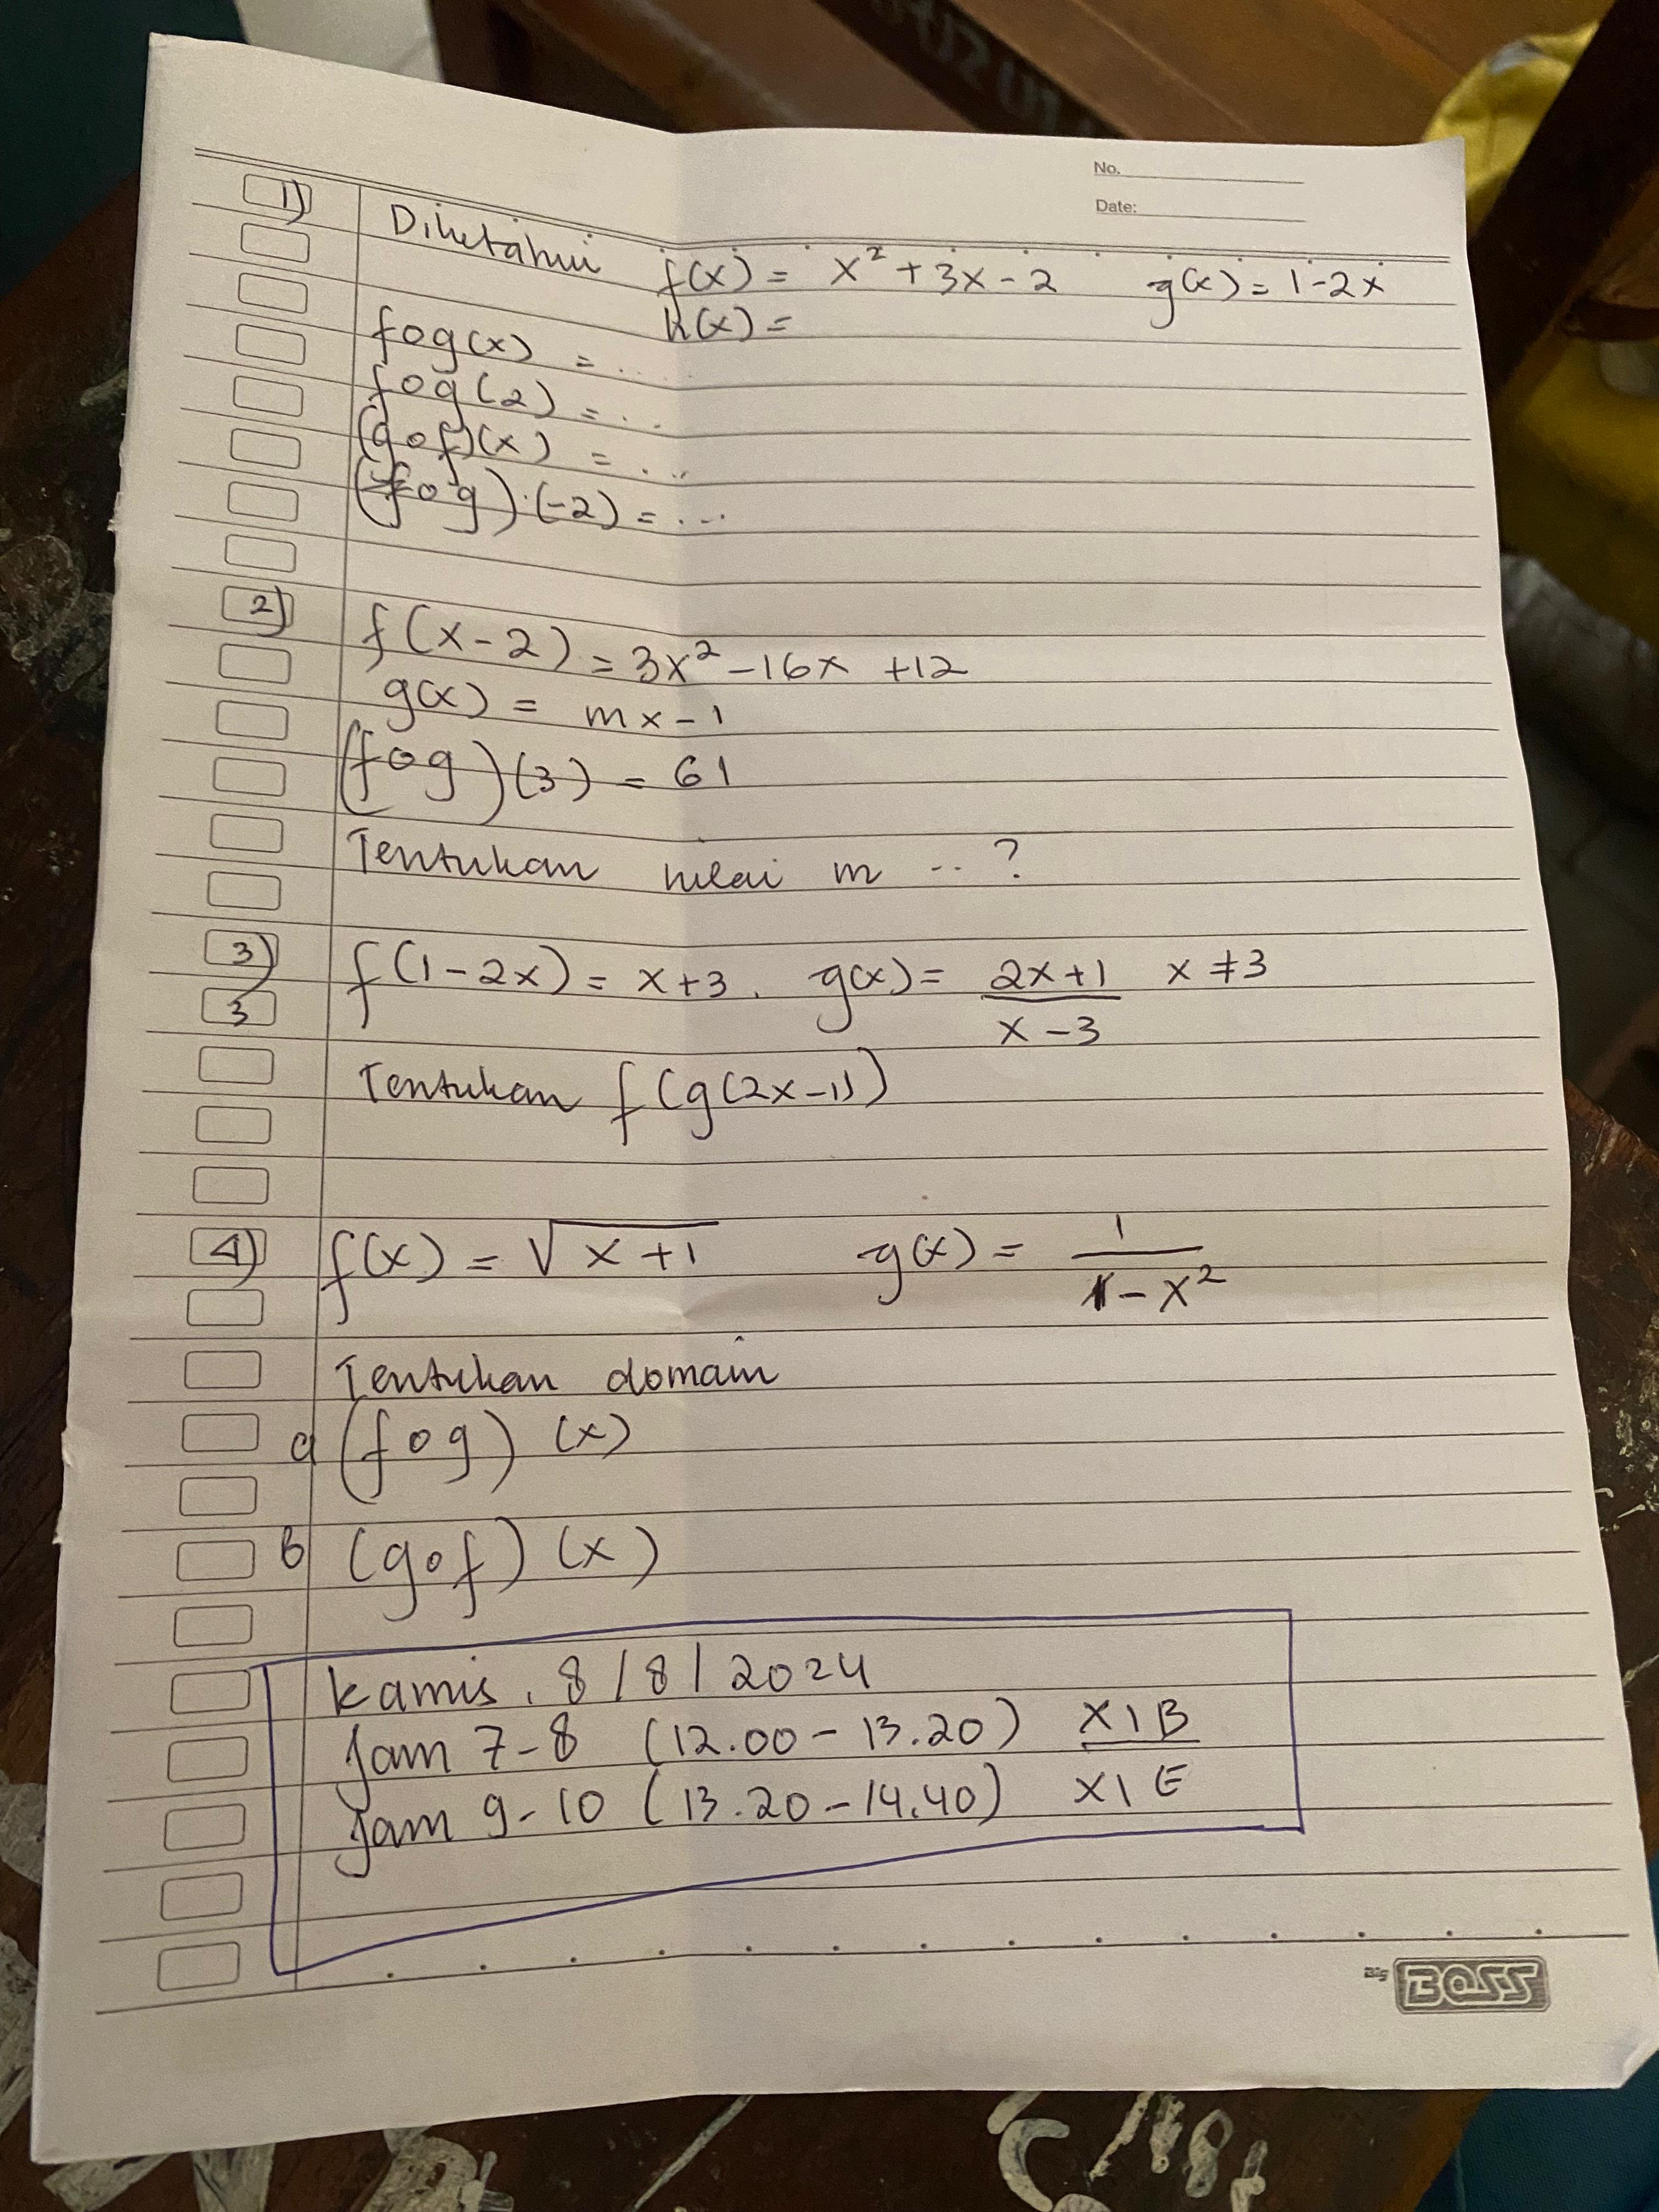 No.
Date:
1) Diketahui f(x) = x² + 3x - 2 g(x) = 1 - 2x
h(x) =
fog(x) = .....
fog(2) = ...
(gof)(x) = ...
(fog).(-2) = ...
2) f(x-2) = 3x² - 16x + 12
g(x) = mx - 1
(fog)(3) = 61
Tentukan nilai m ..?
3) f(1-2x) = x+3. g(x) = 2x+1 / x-3 x ≠ 3
3
Tentukan f(g(2x-1))
4) f(x) = √x+1 g(x) = 1 / 1-x²
Tentukan domain
a (fog) (x)
b (gof) (x)
Kamis, 8/8/2024
Jam 7-8 (12.00 - 13.20) XI B
Jam 9-10 (13.20 - 14.40) XI E
Big BOSS